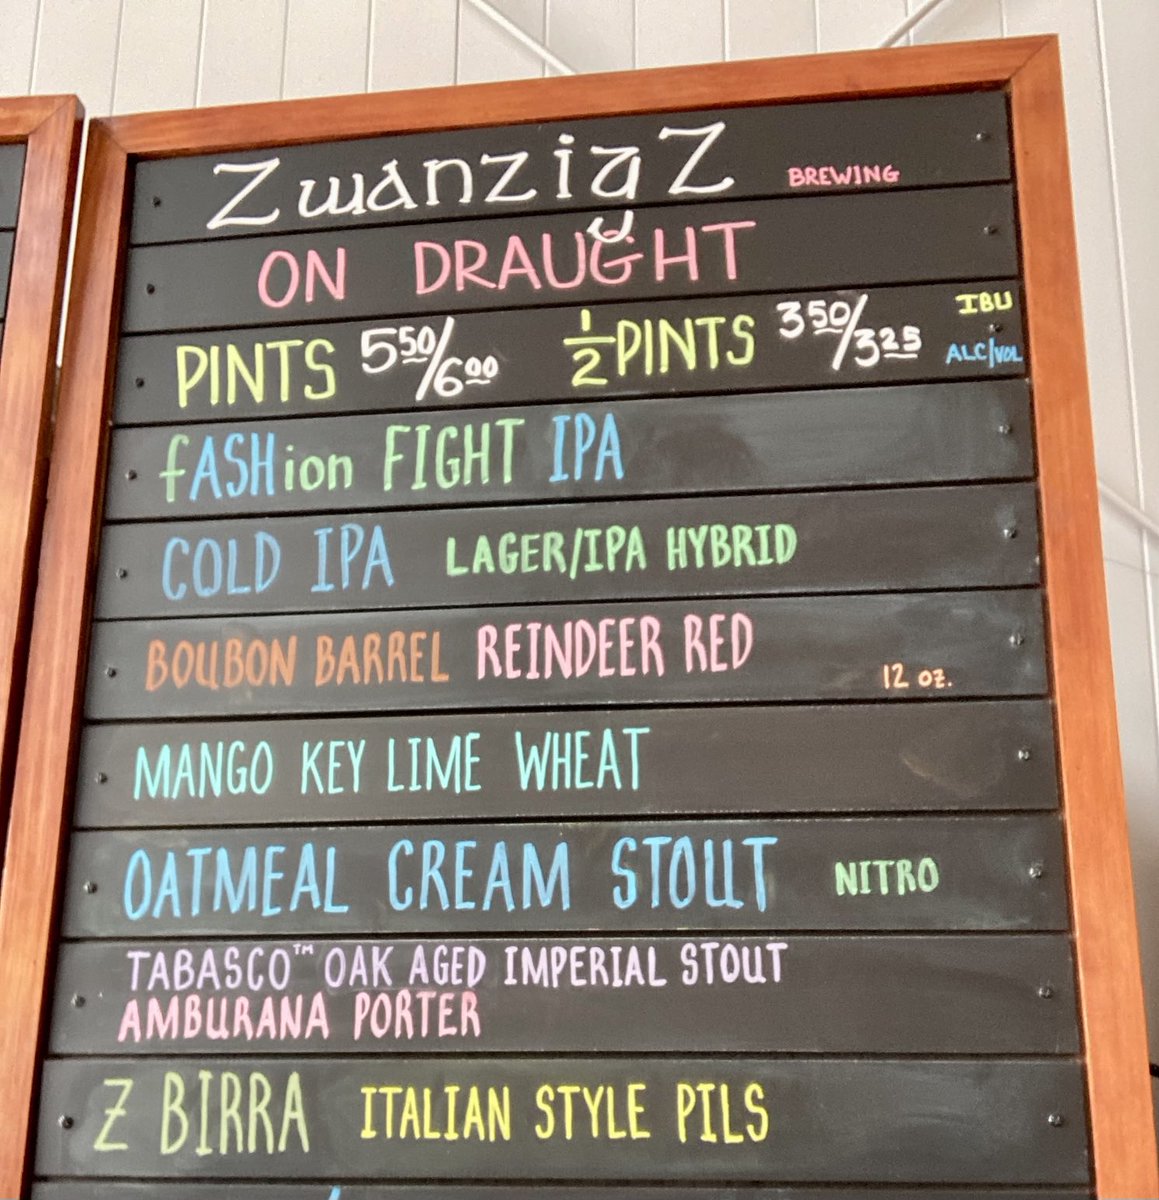 ZwanzigZ BREWING
ON DRAUGHT
PINTS 5 50/6 00 1/2 PINTS 3 50/3 25 IBU
ALC/VOL
fASHion FIGHT IPA
COLD IPA LAGER/IPA HYBRID
BOUBON BARREL REINDEER RED 12 oz.
MANGO KEY LIME WHEAT
OATMEAL CREAM STOUT NITRO
TABASCO™ OAK AGED IMPERIAL STOUT
AMBURANA PORTER
Z BIRRA ITALIAN STYLE PILS